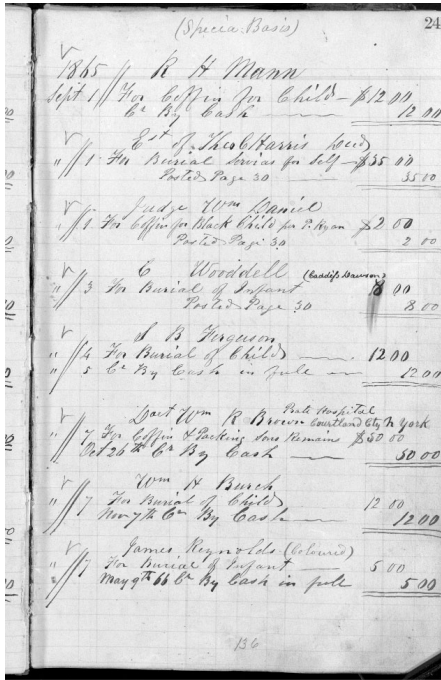 (Specia. Basis)
24
1865 // R H Mann
Sept 1 // For Coffin for Child — $12 00
Cr By Cash — 12 00
Est of Theo C Harris Decd
" // 1 For Burial Servias for Self — $35 00
Posted Page 30 — 35 00
Judge Wm Daniel
" // 1 For Coffin for Black Child for P. Ryan $2 00
Posted Page 30 2 00
C Wooddell (Caddifs Dawson)
" // 3 For Burial of Infant 8 00
Posted Page 30 8 00
S B Ferguson
" // 4 For Burial of Child — 12 00
" 5 Cr By Cash in full — 12 00
Doct Wm R Brown Prate Hospital
Courtland Cty N York
" // 7 For Coffin & Packing Sons Remains $50 00
Oct 26th Cr By Cash — 50 00
Wm H Burch
" // 7 For Burial of Child 12 00
Nov 7th Cr By Cash — 12 00
James Reynolds (Coloured)
" // 7 For Burial of Infant — 5 00
May 9th 66 Cr By Cash in full 5 00
136